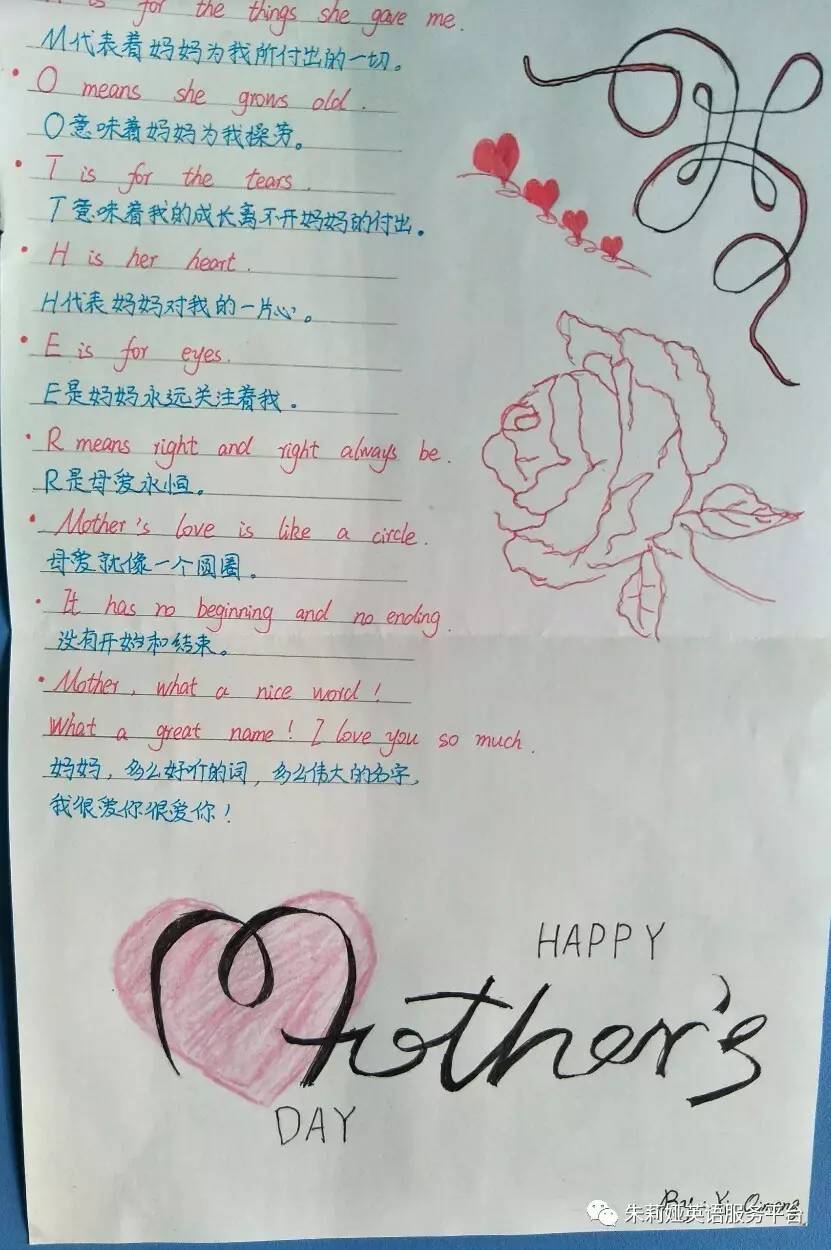 is for the things she gave me.
M代表着妈妈为我所付出的一切。
O means she grows old.
O意味着妈妈为我操劳。
T is for the tears.
T意味着我的成长离不开妈妈的付出。
H is her heart.
H代表妈妈对我的一片心。
E is for eyes.
E是妈妈永远关注着我.
R means right and right always be.
R是母爱永恒。
Mother's love is like a circle.
母爱就像一个圆圈。
It has no beginning and no ending.
没有开始和结束。
Mother, what a nice word!
What a great name! I love you so much.
妈妈,多么好听的词,多么伟大的名字,
我很爱你很爱你!
HAPPY
Mother's
DAY
By: Yi
朱莉娅英语服务平台